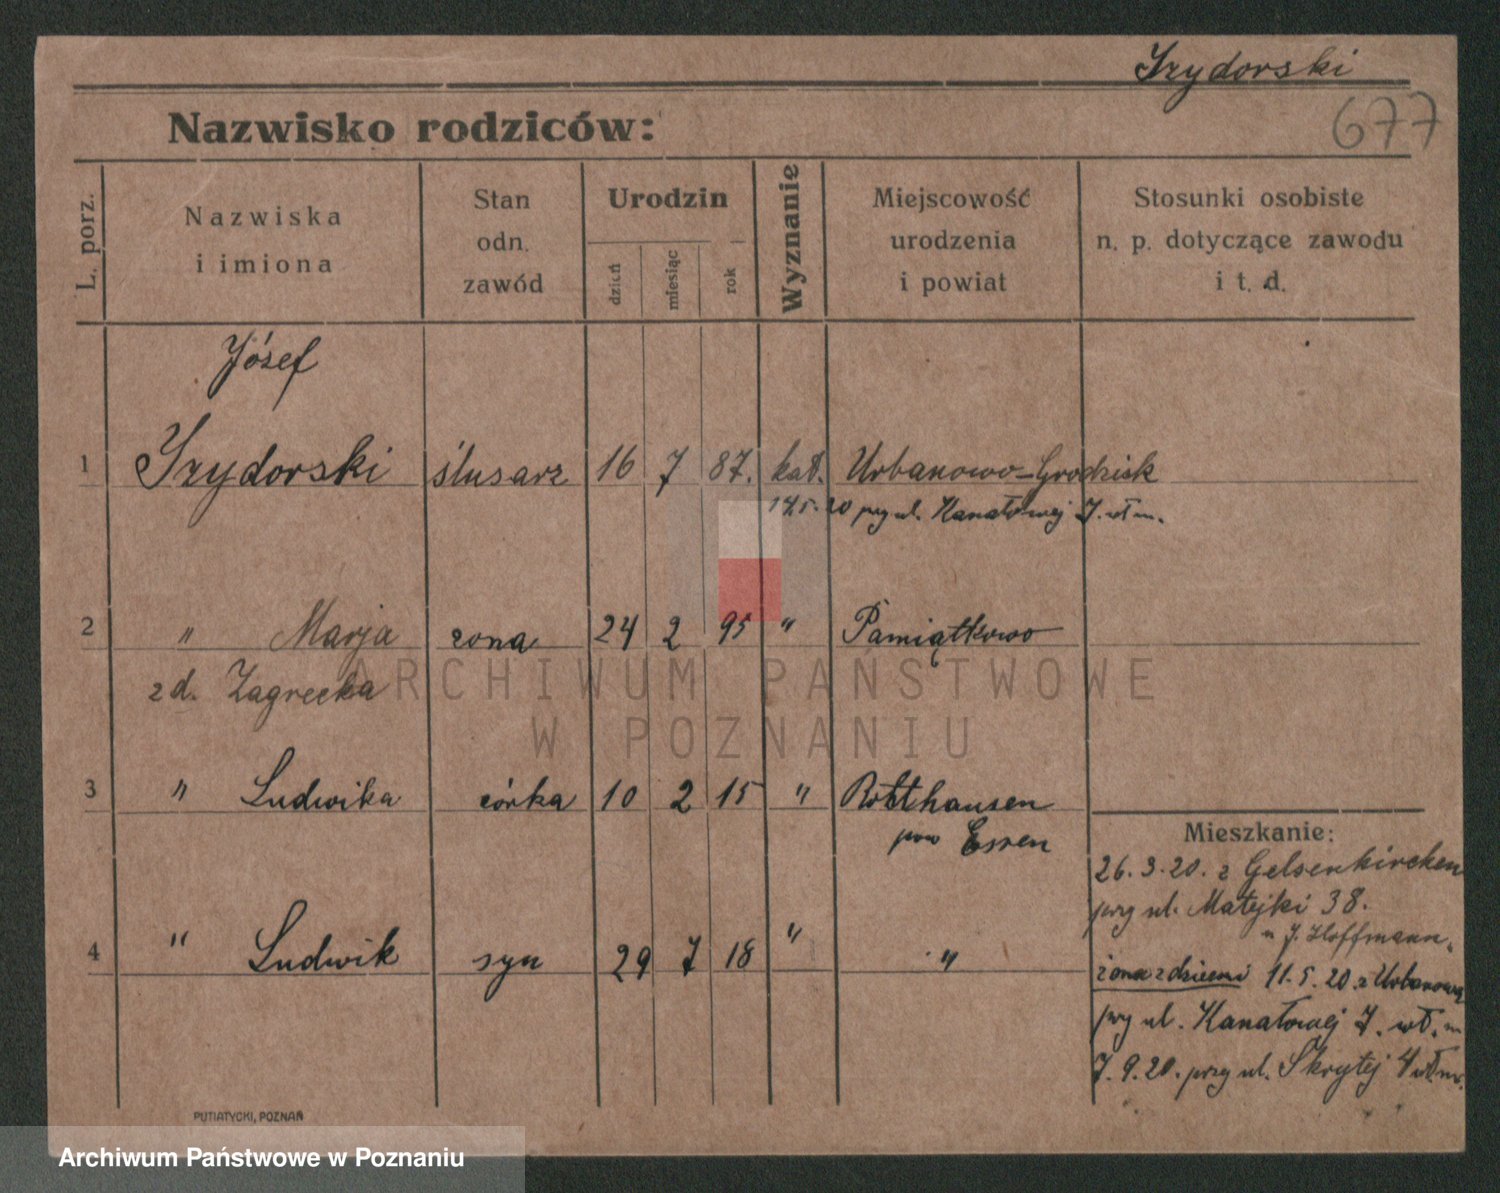 Izydorski
677
Nazwisko rodziców:
L. porz.
Nazwiska
i imiona
Stan
odn.
zawód
Urodzin
dzień
miesiąc
rok
Wyznanie
Miejscowość
urodzenia
i powiat
Stosunki osobiste
n. p. dotyczące zawodu
i t. d.
Józef
1 Izydorski ślusarz 16 7 87. kat. Urbanowo-Grodzisk
14.5.20 przy ul. Kanałowej 7. wł m.
2 " Marja żona 24 2 95 " Pamiątkowo
z d. Zagrecka
3 " Ludwika córka 10 2 15 " Rotthausen
pow Essen
4 " Ludwik syn 29 7 18 " "
Mieszkanie:
26.3.20. z Gelsenkirchen
przy ul. Matejki 38.
u J. Hoffmann.
żona z dziećmi 11.5.20 z Urbanowa
przy ul. Kanałowej 7. wł. m
7.9.20. przy ul. Skrytej 4 wł m.
PUTIATYCKI, POZNAŃ
ARCHIWUM PAŃSTWOWE
W POZNANIU
Archiwum Państwowe w Poznaniu